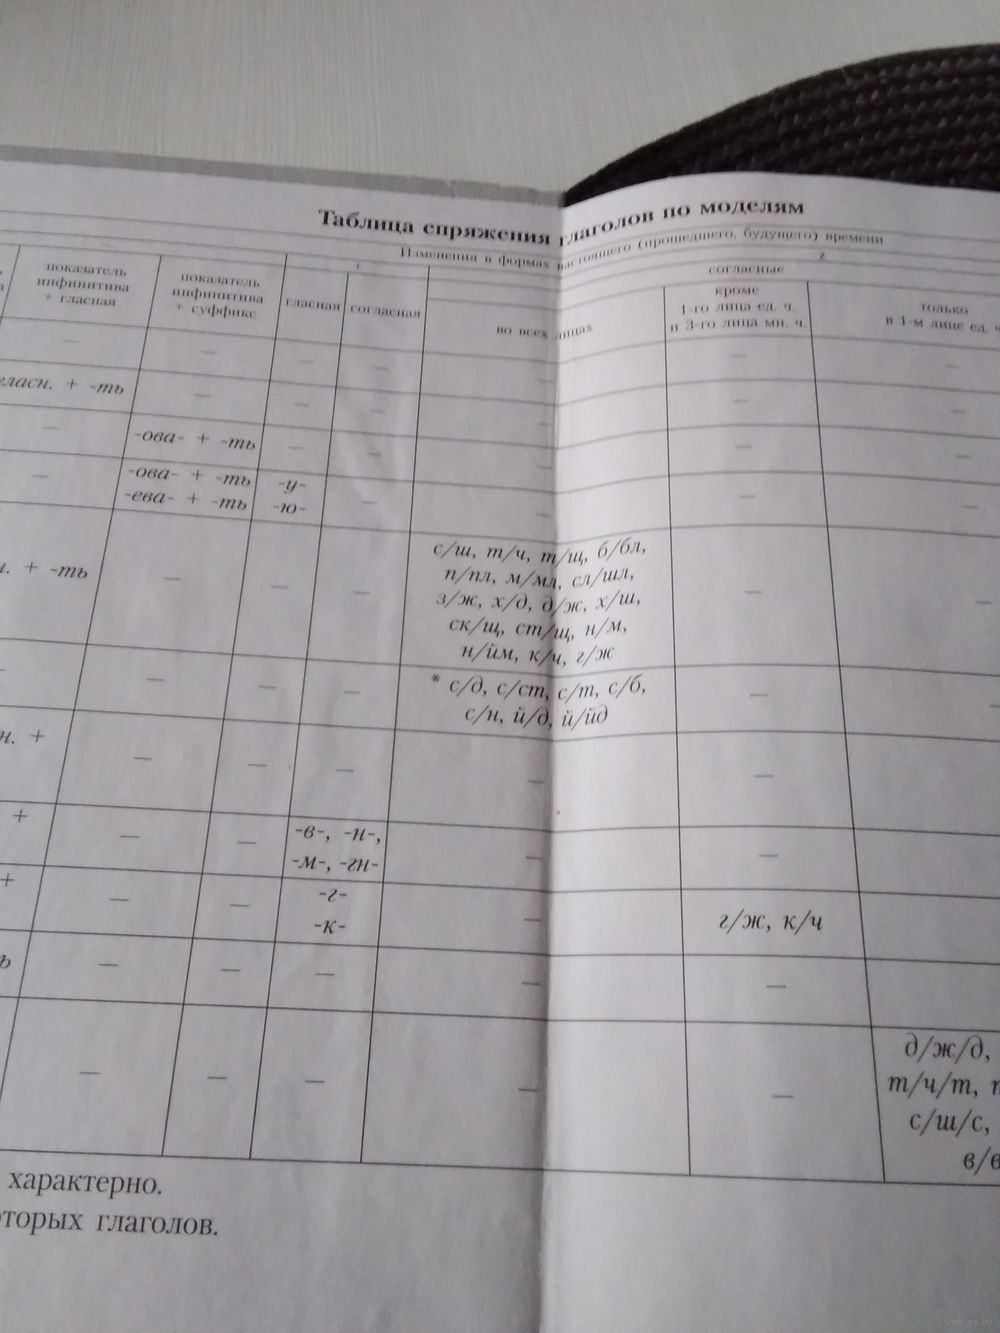 Таблица спряжения глаголов по моделям
Изменения в формах настоящего (прошедшего, будущего) времени
+ z
согласные
показатель
инфинитива
+ гласная
показатель
инфинитива
+ суффикс
гласная
согласная
во всех лицах
кроме
1-го лица ед. ч.
и 3-го лица мн. ч.
только
в 1-м лице ед. ч
— — — — — — —
гласн. + -ть — — — — — —
— -ова- + -ть — — — — —
— -ова- + -ть -у- — — — —
-ева- + -ть -ю-
н. + -ть — — — с/ш, т/ч, т/щ, б/бл, — —
п/пл, м/мл, сл/шл,
з/ж, х/д, д/ж, х/ш,
ск/щ, ст/щ, н/м,
н/йм, к/ч, г/ж
— — — — * с/д, с/ст, с/т, с/б, — —
с/н, й/д, й/йд
н. + — — — — — —
+ — — -в-, -н-, — —
-м-, -гн-
+ — — -г- — г/ж, к/ч
-к-
ь — — — — —
— — — — — д/ж/д,
т/ч/т, п
с/ш/с,
в/в
характерно.
оторых глаголов.
www.ay.by